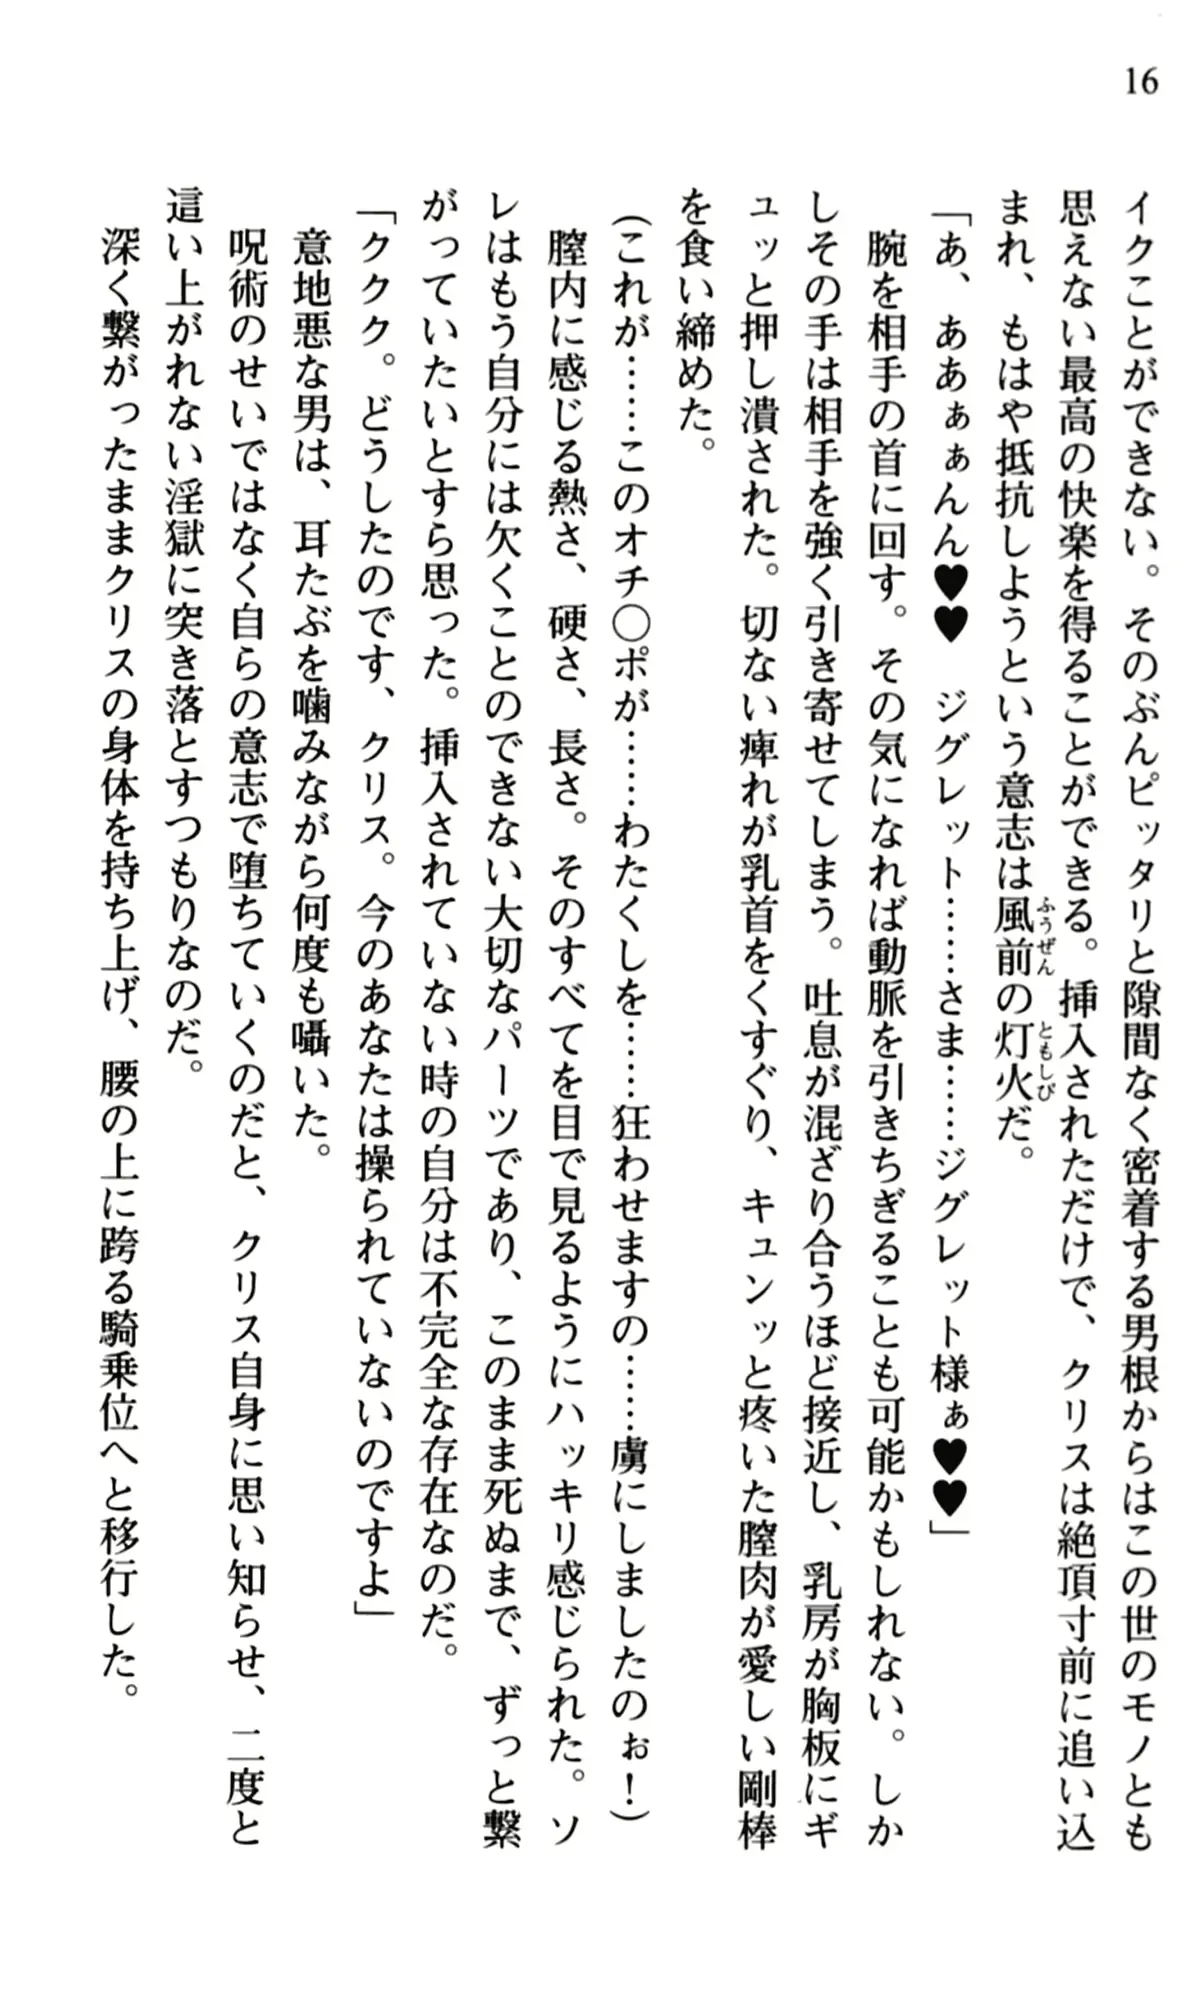 16
イクことができない。そのぶんピッタリと隙間なく密着する男根からはこの世のモノとも
思えない最高の快楽を得ることができる。挿入されただけで、クリスは絶頂寸前に追い込
まれ、もはや抵抗しようという意志は風前の灯火だ。
ふうぜん
ともしび
「あ、ああぁぁんん♥♥　ジグレット……さま……ジグレット様ぁ♥♥」
　腕を相手の首に回す。その気になれば動脈を引きちぎることも可能かもしれない。しか
しその手は相手を強く引き寄せてしまう。吐息が混ざり合うほど接近し、乳房が胸板にギ
ュッと押し潰された。切ない痺れが乳首をくすぐり、キュンッと疼いた膣肉が愛しい剛棒
を食い締めた。
（これが……このオチ〇ポが……わたくしを……狂わせますの……虜にしましたのぉ！）
　膣内に感じる熱さ、硬さ、長さ。そのすべてを目で見るようにハッキリ感じられた。ソ
レはもう自分には欠くことのできない大切なパーツであり、このまま死ぬまで、ずっと繋
がっていたいとすら思った。挿入されていない時の自分は不完全な存在なのだ。
「ククク。どうしたのです、クリス。今のあなたは操られていないのですよ」
　意地悪な男は、耳たぶを噛みながら何度も囁いた。
　呪術のせいではなく自らの意志で堕ちていくのだと、クリス自身に思い知らせ、二度と
這い上がれない淫獄に突き落とすつもりなのだ。
　深く繋がったままクリスの身体を持ち上げ、腰の上に跨る騎乗位へと移行した。